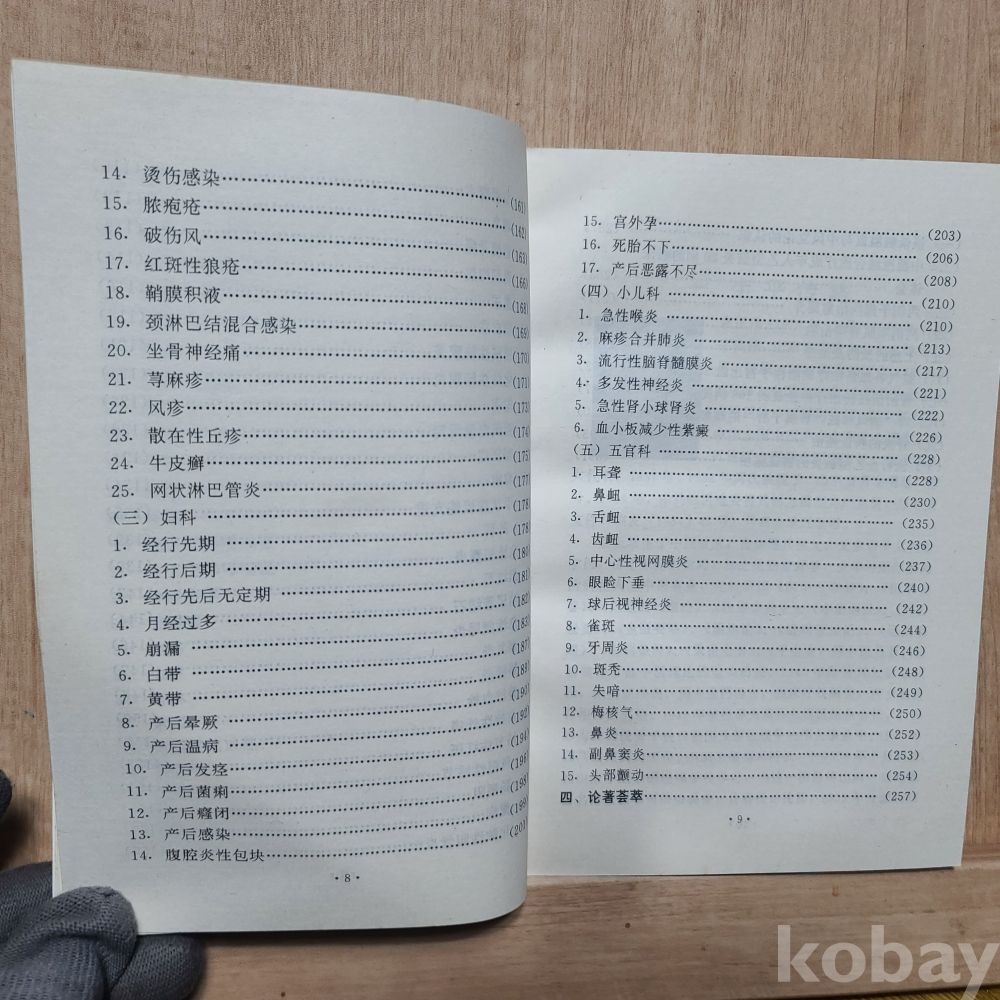 14. 烫伤感染……(161)
15. 脓疱疮……(162)
16. 破伤风……(163)
17. 红斑性狼疮……(166)
18. 鞘膜积液……(168)
19. 颈淋巴结混合感染……(169)
20. 坐骨神经痛……(170)
21. 荨麻疹……(171)
22. 风疹……(173)
23. 散在性丘疹……(174)
24. 牛皮癣……(175)
25. 网状淋巴管炎……(177)
（三）妇科……(178)
1. 经行先期……(178)
2. 经行后期……(180)
3. 经行先后无定期……(181)
4. 月经过多……(182)
5. 崩漏……(183)
6. 白带……(187)
7. 黄带……(189)
8. 产后晕厥……(190)
9. 产后温病……(192)
10. 产后发痉……(194)
11. 产后菌痢……(196)
12. 产后癃闭……(198)
13. 产后感染……(199)
14. 腹腔炎性包块……(201)
·8·
15. 宫外孕……(203)
16. 死胎不下……(206)
17. 产后恶露不尽……(208)
（四）小儿科……(210)
1. 急性喉炎……(210)
2. 麻疹合并肺炎……(213)
3. 流行性脑脊髓膜炎……(217)
4. 多发性神经炎……(221)
5. 急性肾小球肾炎……(222)
6. 血小板减少性紫癜……(226)
（五）五官科……(228)
1. 耳聋……(228)
2. 鼻衄……(230)
3. 舌衄……(235)
4. 齿衄……(236)
5. 中心性视网膜炎……(237)
6. 眼睑下垂……(240)
7. 球后视神经炎……(242)
8. 雀斑……(244)
9. 牙周炎……(246)
10. 斑秃……(248)
11. 失喑……(249)
12. 梅核气……(250)
13. 鼻炎……(252)
14. 副鼻窦炎……(253)
15. 头部颤动……(254)
四、论著荟萃……(257)
·9·
kobay